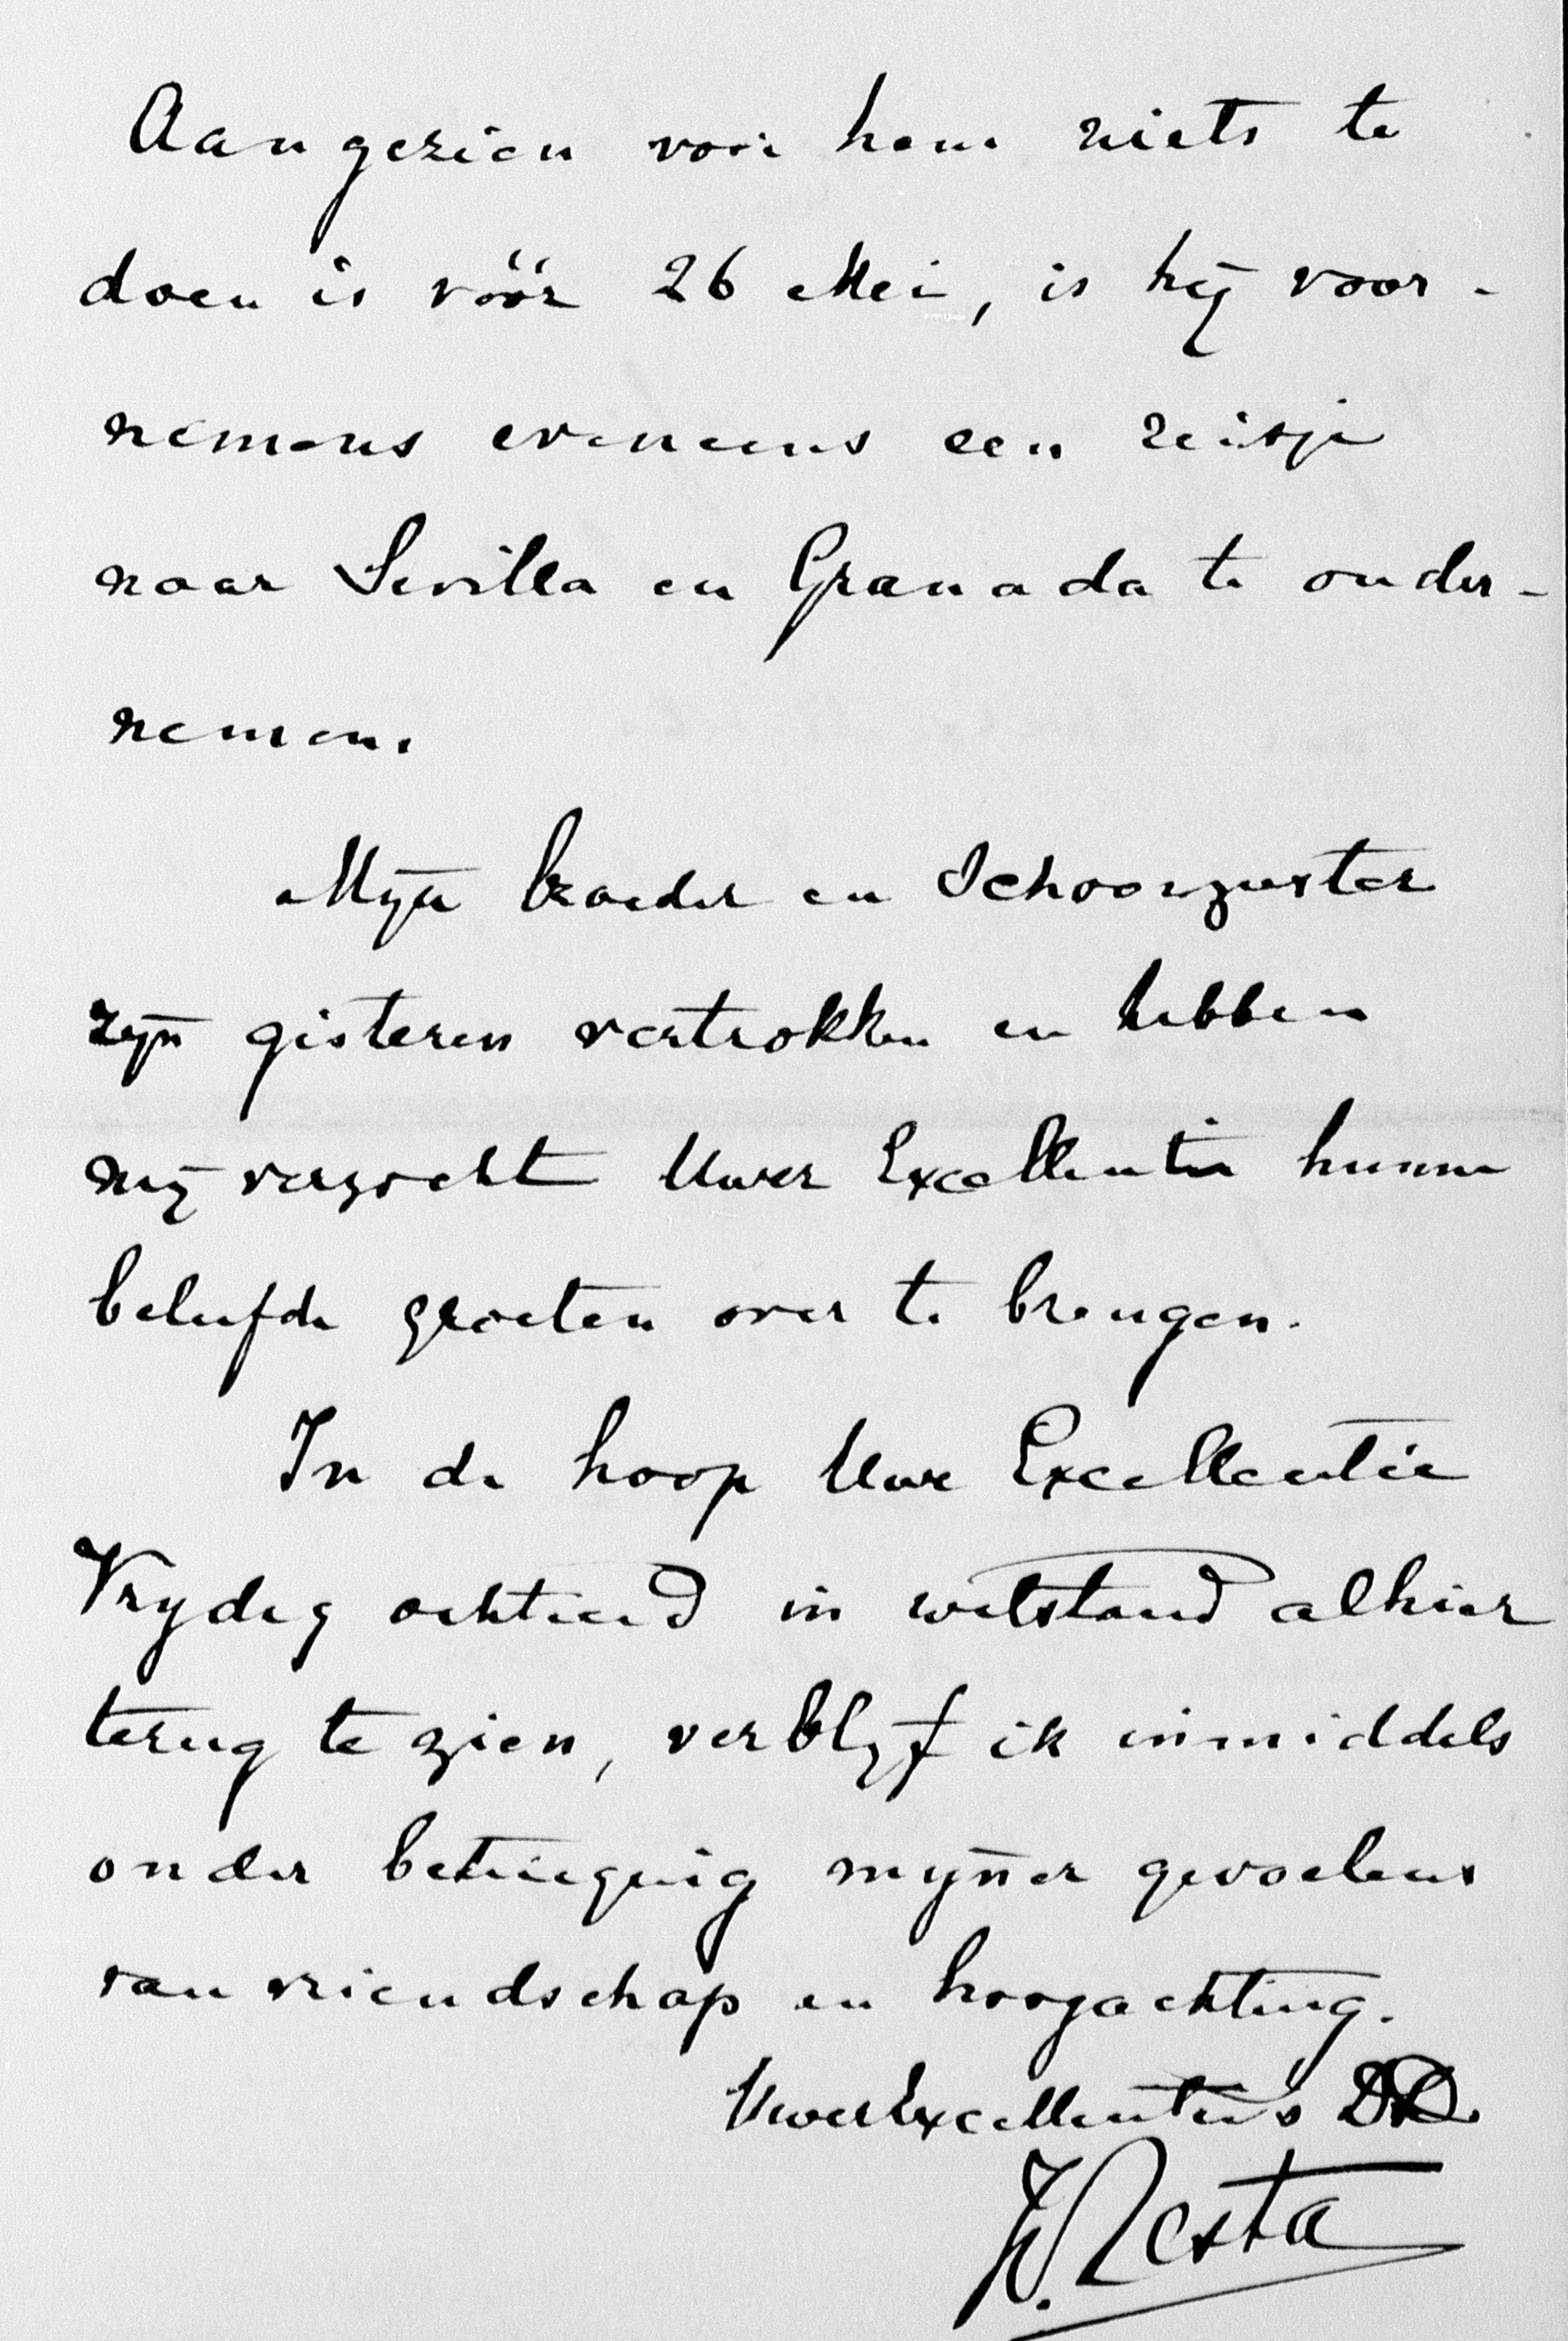 Aangezien voor hem niets te
doen is vóór 26 Mei, is hij voor-
nemens eveneens een reisje
naar Sevilla en Granada te onder-
nemen.
Mijn broeder en Schoonzuster
zijn gisteren vertrokken en hebben
mij verzocht Uwer Excellentie hunne
beleefde groeten over te brengen.
In de hoop Uwe Excellentie
Vrijdag ochtend in welstand alhier
terug te zien, verblijf ik inmiddels
onder betuiging mijner gevoelens
van vriendschap en hoogachting.
Uwer Excellentie's
Resta